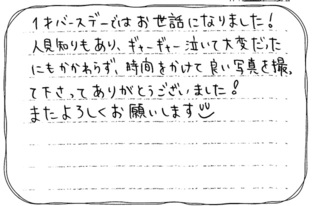 1才バースデーではお世話になりました！
人見知りもあり、ギャーギャー泣いて大変だった
にもかかわらず、時間をかけて良い写真を撮っ
て下さってありがとうございました！
またよろしくお願いします